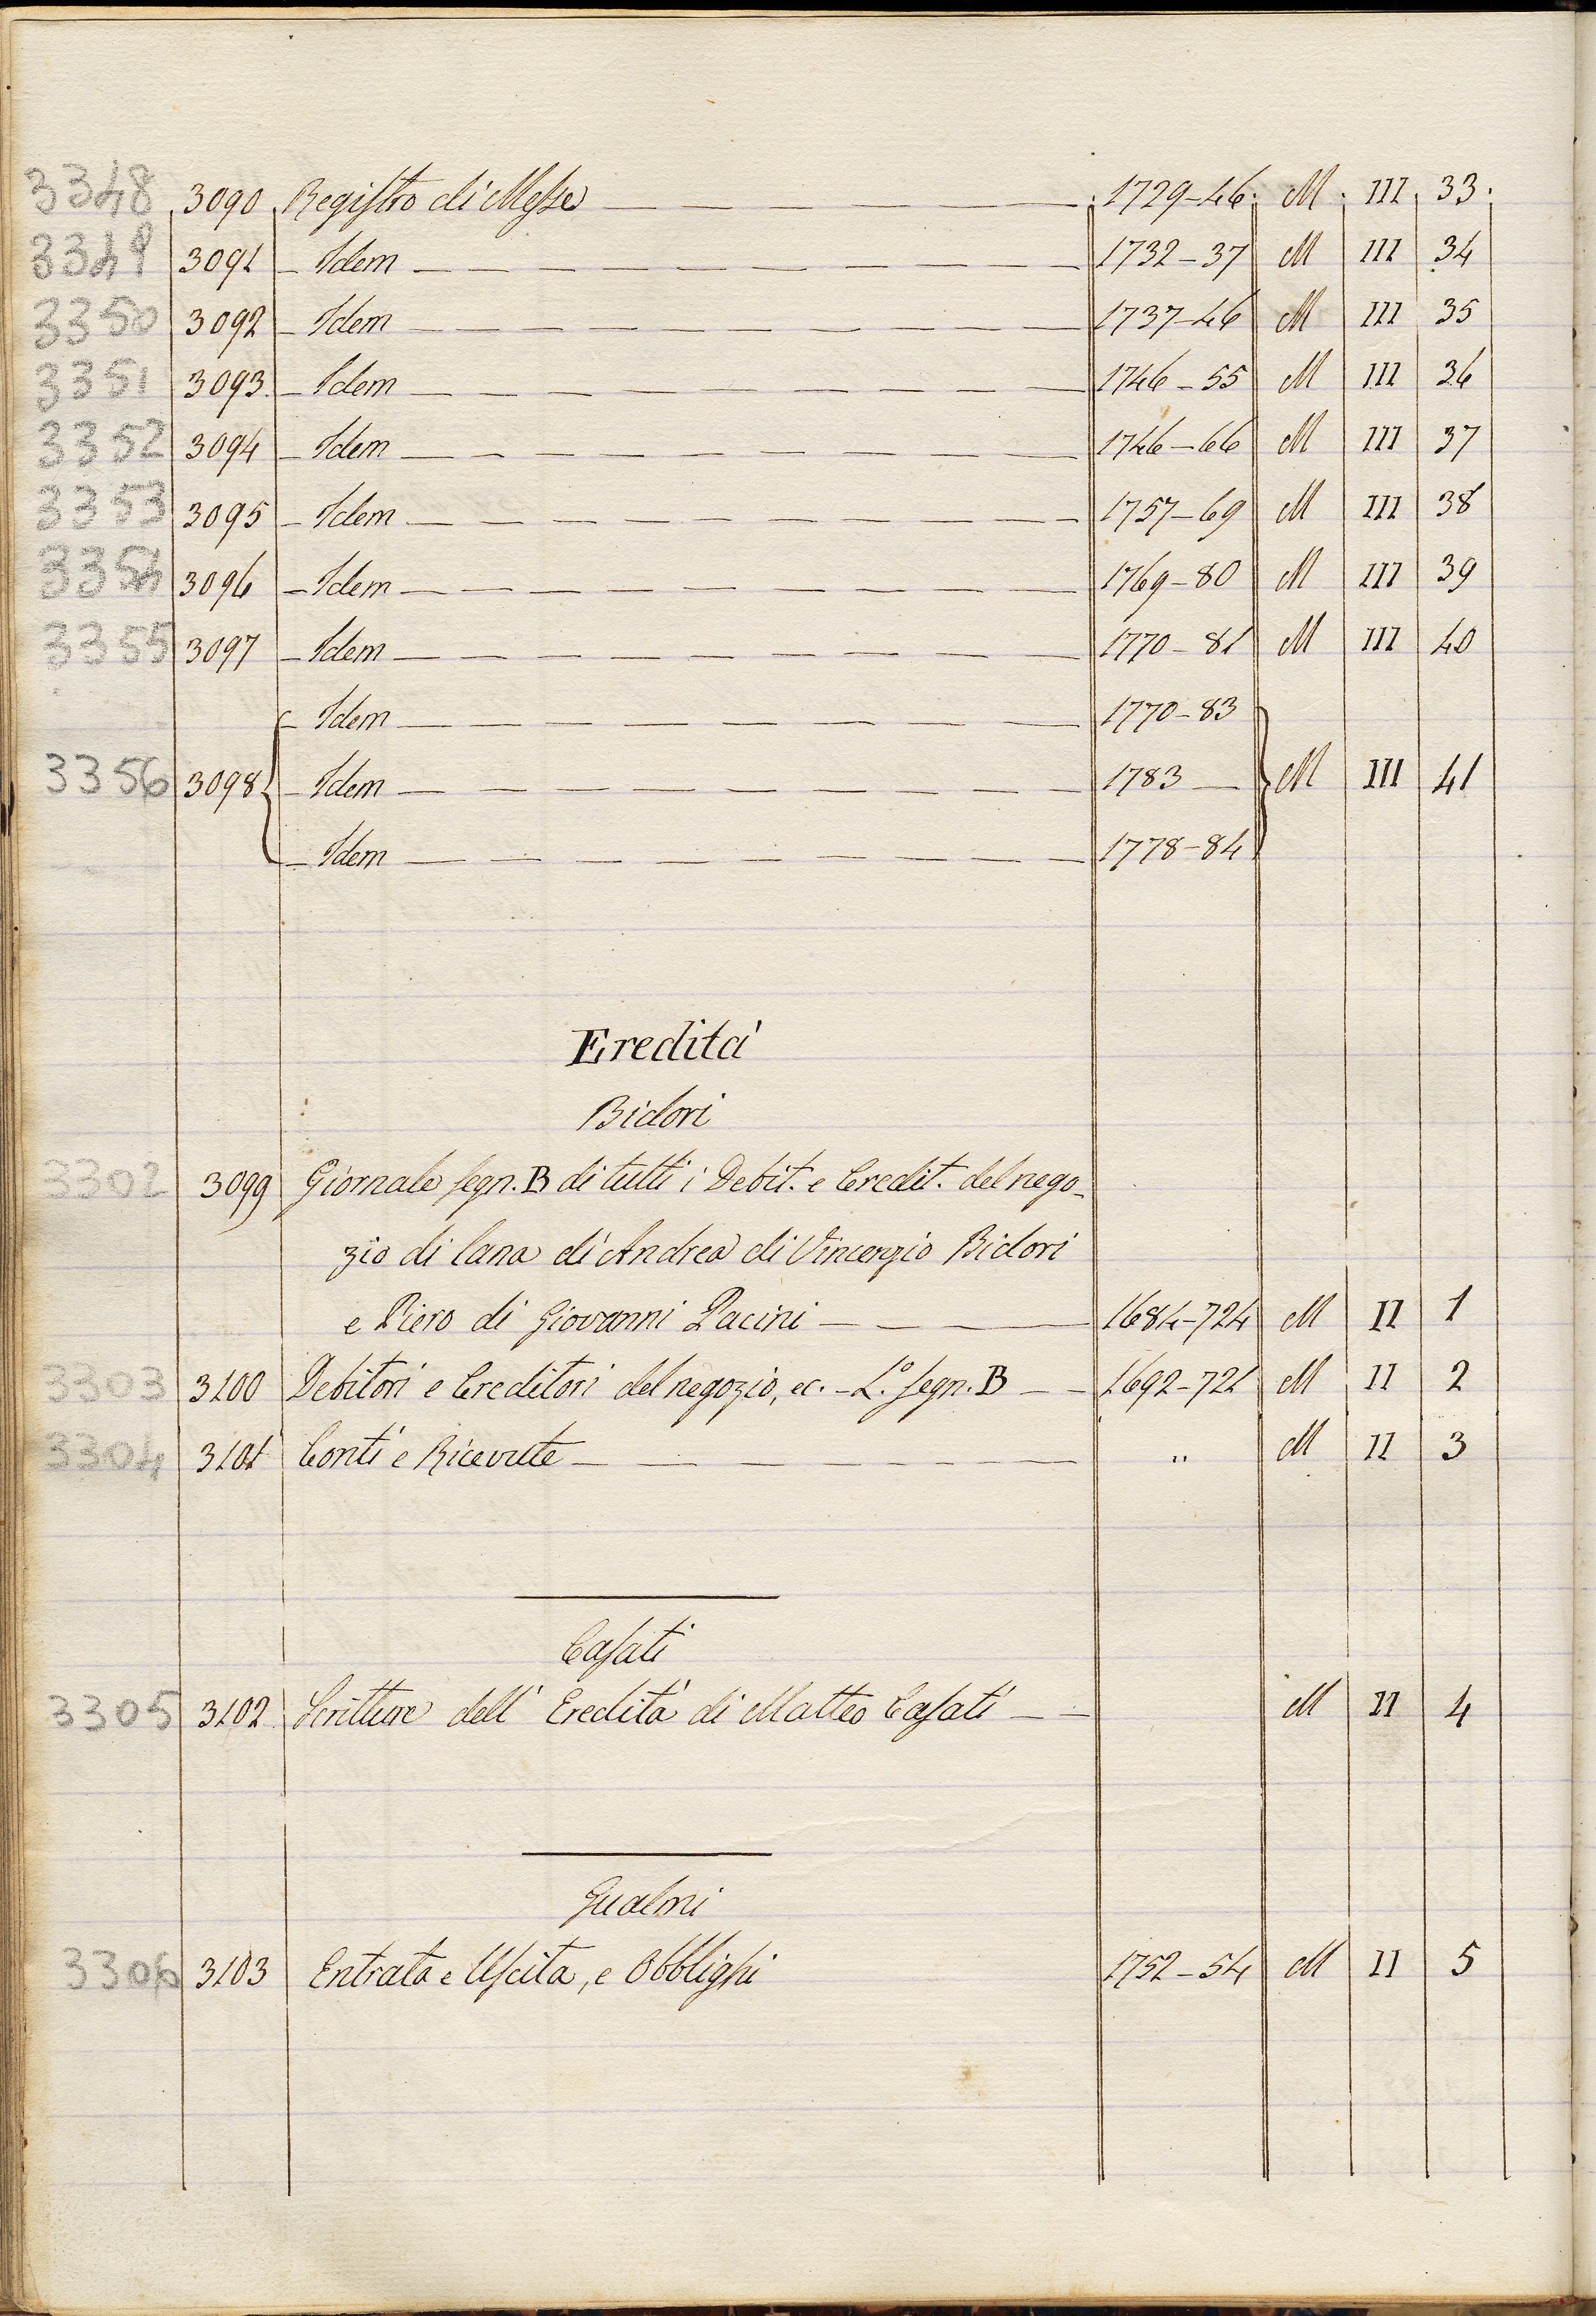 3348 3090 Registro di Messe 1729-46. M. III. 33.
3349 3091 - Idem 1732-37 M III 34
3350 3092 - Idem 1737-46 M III 35
3351 3093 - Idem 1746-55 M III 36
3352 3094 - Idem 1746-66 M III 37
3353 3095 - Idem 1757-69 M III 38
3354 3096 - Idem 1769-80 M III 39
3355 3097 - Idem 1770-81 M III 40
- Idem 1770-83
3356 3098 - Idem 1783 — M III 41
- Idem 1778-84
Eredità
Bidori
3302 3099 Giornale segn. B di tutti i Debit. e Credit. del nego-
zio di lana di Andrea di Vincenzio Bidori
e Piero di Giovanni Pacini 1684-724 M II 1
3303 3100 Debitori e Creditori del negozio, ec. - L.º segn. B 1692-721 M II 2
3304 3101 Conti e Ricevute " M II 3
Casati
3305 3102 Scritture dell' Eredità di Matteo Casati M II 4
Gualmi
3306 3103 Entrata e Uscita, e Obblighi 1752-54 M II 5